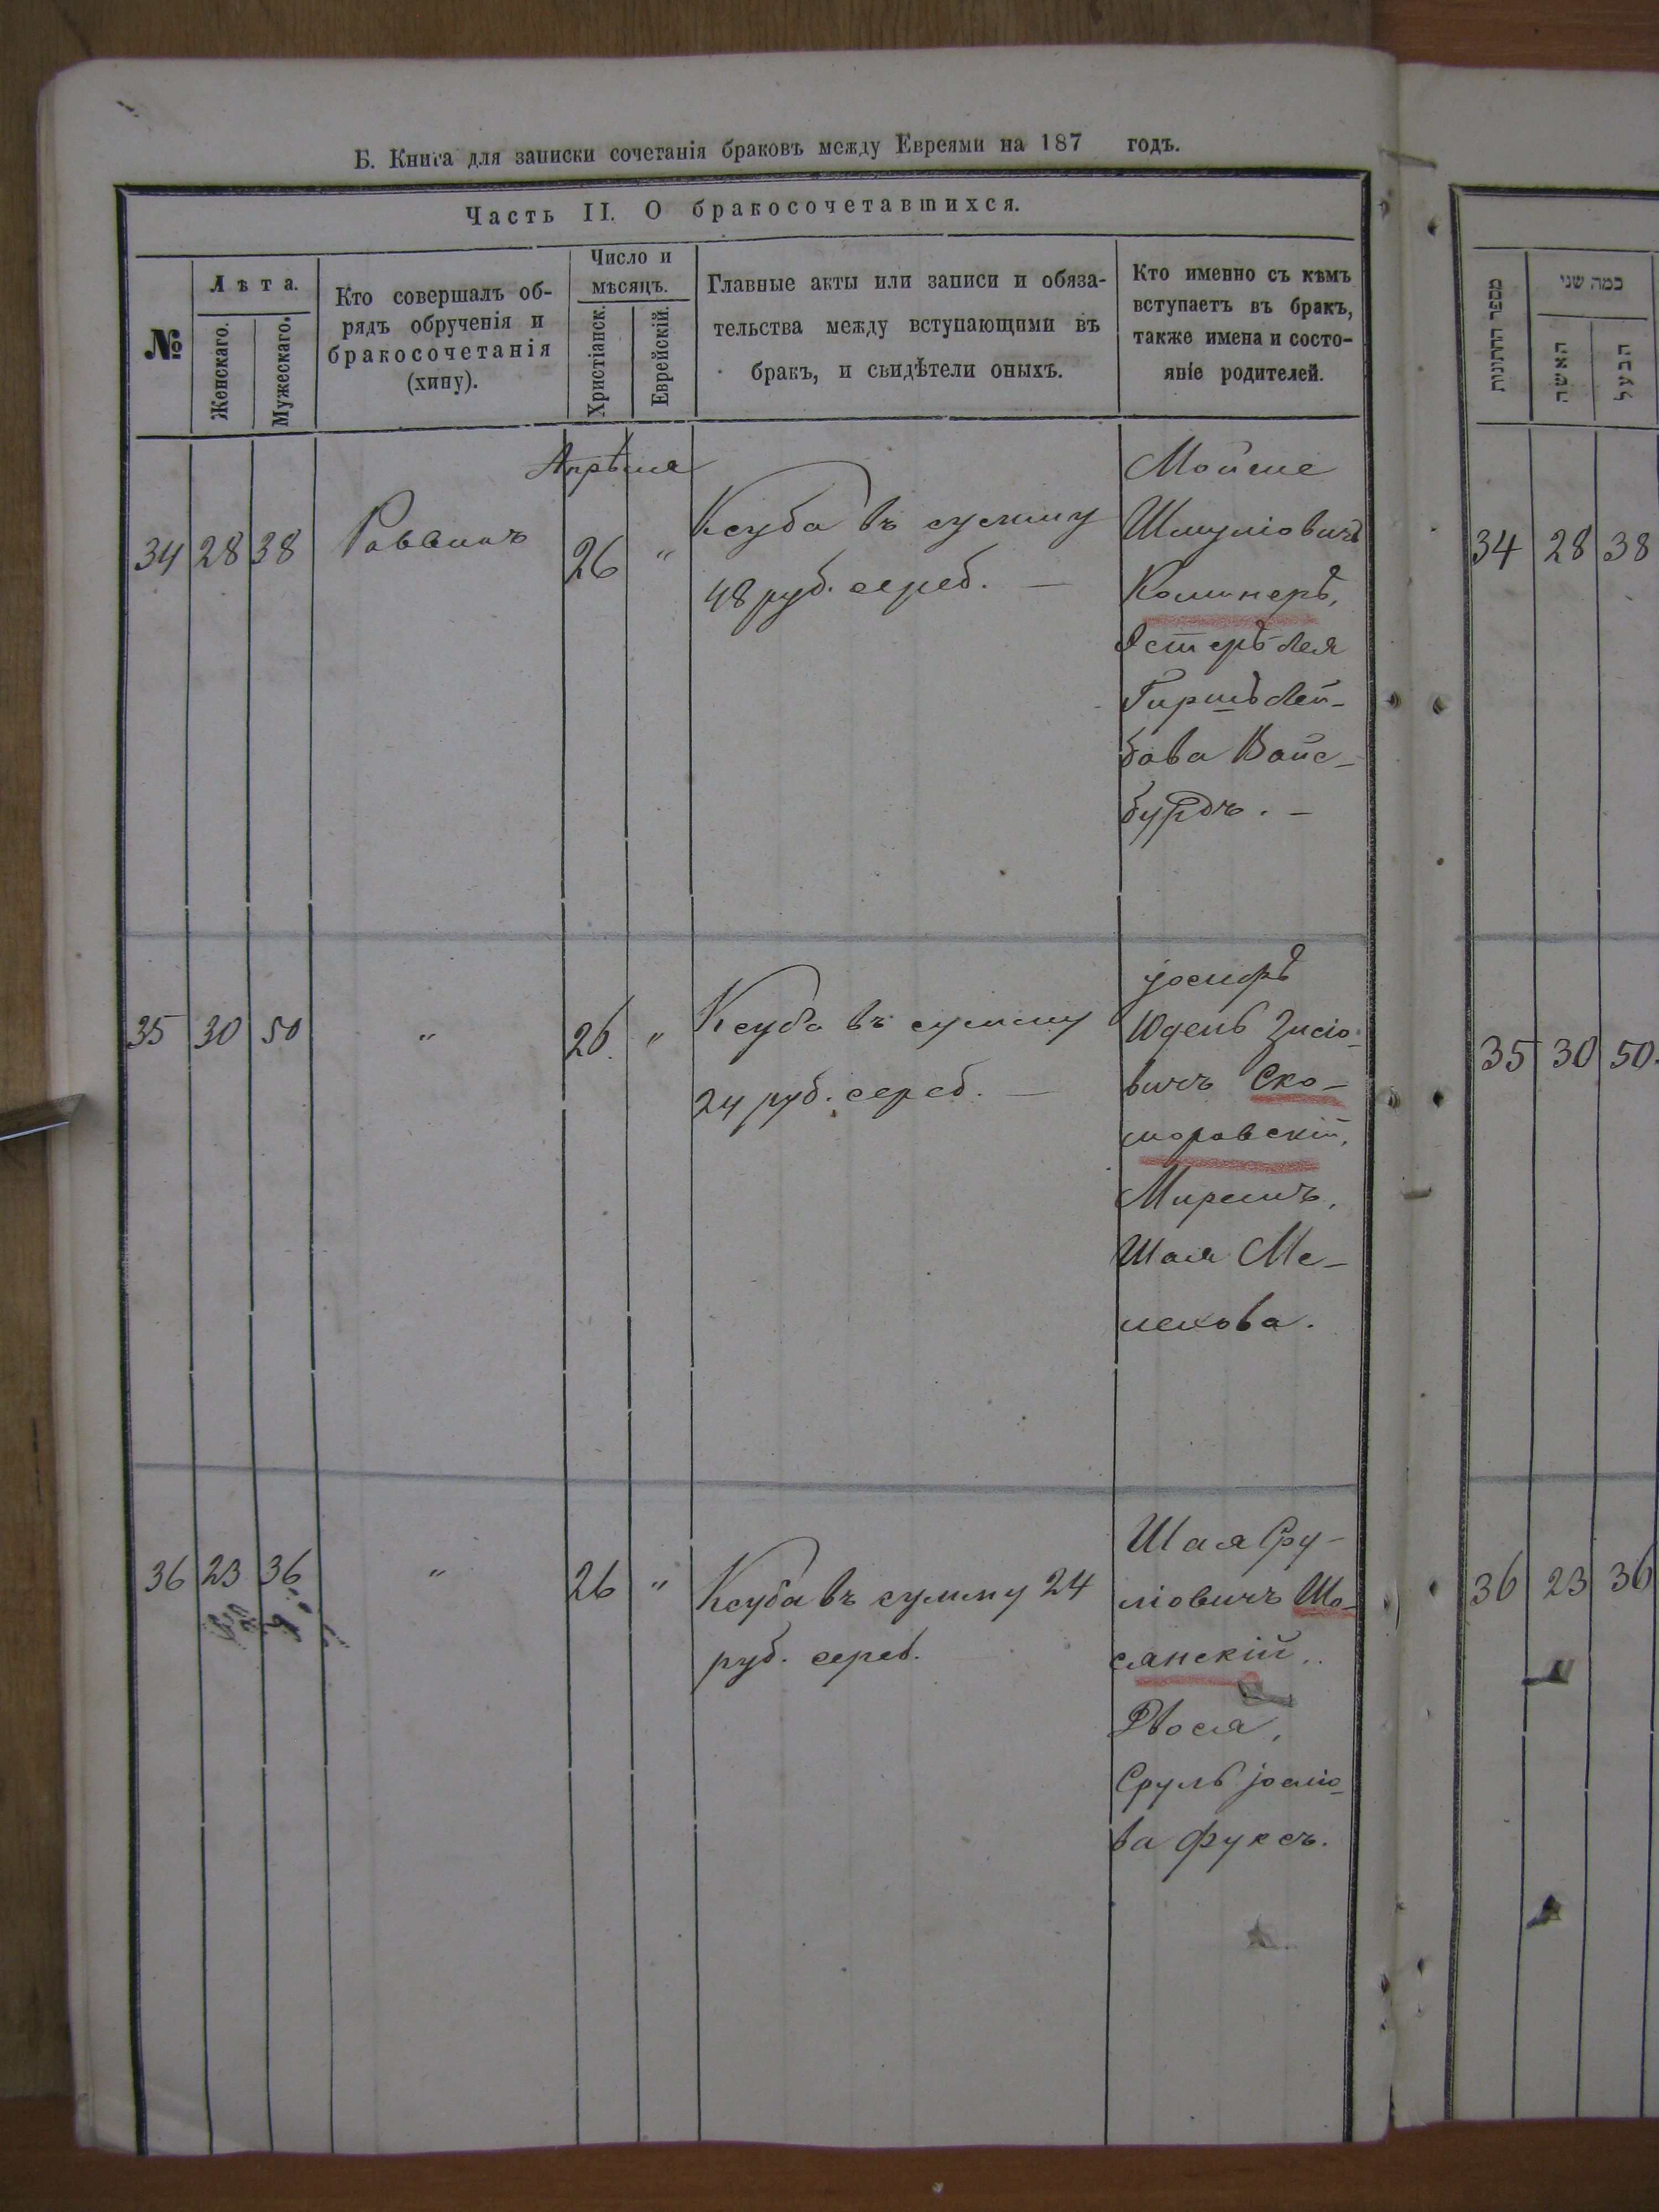 Б. Книга для записки сочетанія браковъ между Евреями на 187 годъ.
Часть II. О бракосочетавшихся.
№
Лѣта.
Женскаго.
Мужескаго.
Кто совершалъ об-
рядъ обрученія и
бракосочетанія
(хипу).
Число и
мѣсяцъ.
Христіанск.
Еврейскій.
Главные акты или записи и обяза-
тельства между вступающими въ
бракъ, и свидѣтели оныхъ.
Кто именно съ кѣмъ
вступаетъ въ бракъ,
также имена и состо-
яніе родителей.
Апрѣля
34 28 38 Раввинъ 26 "
Ксуба въ сумму
48 руб. сереб. —
Мойше
Шмуліовичъ
Коминеръ,
Эстеръ Лея
Гиршъ Лей-
бова Вайс-
бурдъ. —
35 30 50 " 26. "
Ксуба въ сумму
24 руб. сереб. —
Іосифъ
Юдель Зисіо-
вичъ Ско-
моровскій,
Миремъ,
Шая Ме-
лехова.
36 23 36 " 26 "
Ксуба въ сумму 24
руб. сереб.
Шая Сру-
ліовичъ Шо-
слнскій..
Двося,
Сруль Іосіо-
ва Фуксъ.
מספר החתונות
כמה שני
האשה
הבעל
34 28 38
35 30 50.
36 23 36